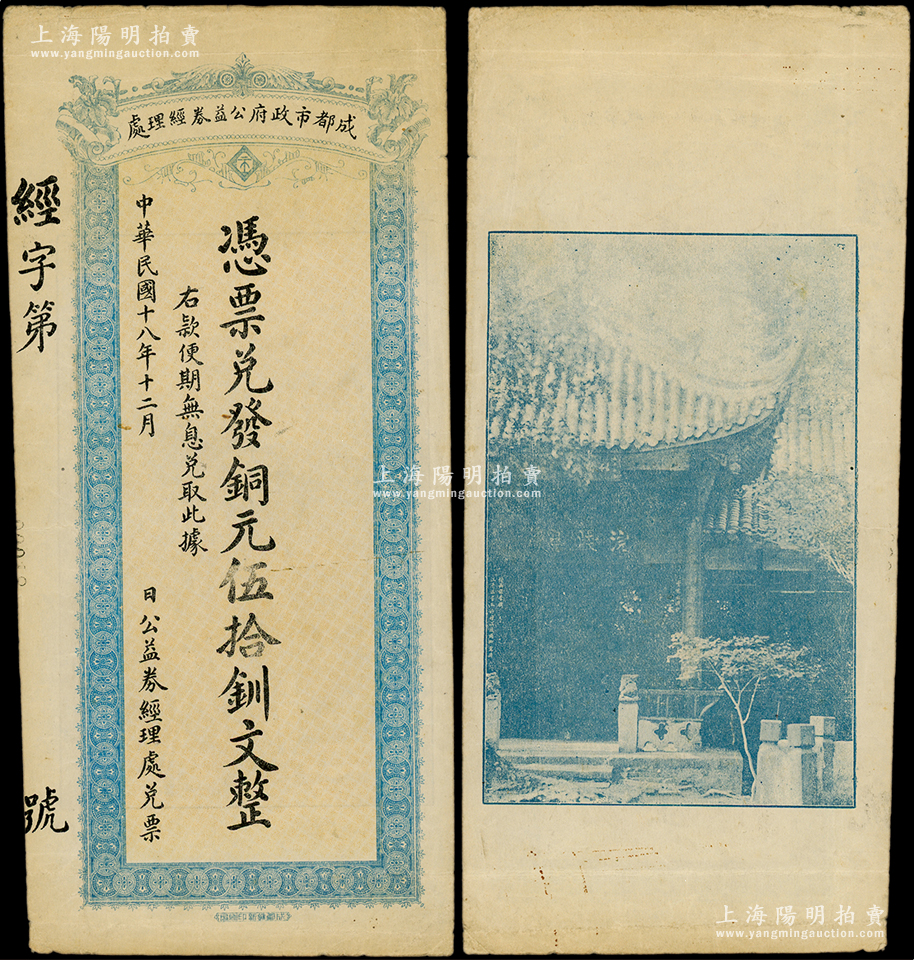 上海陽明拍賣
www.yangmingauction.com
成都市政府公益券經理處
憑票兌發銅元伍拾釧文整
右款便期無息兌取此據
中華民國十八年十二月 日公益券經理處兌票
經字第 號
上海陽明拍賣
www.yangmingauction.com
上海陽明拍賣
www.yangmingauction.com